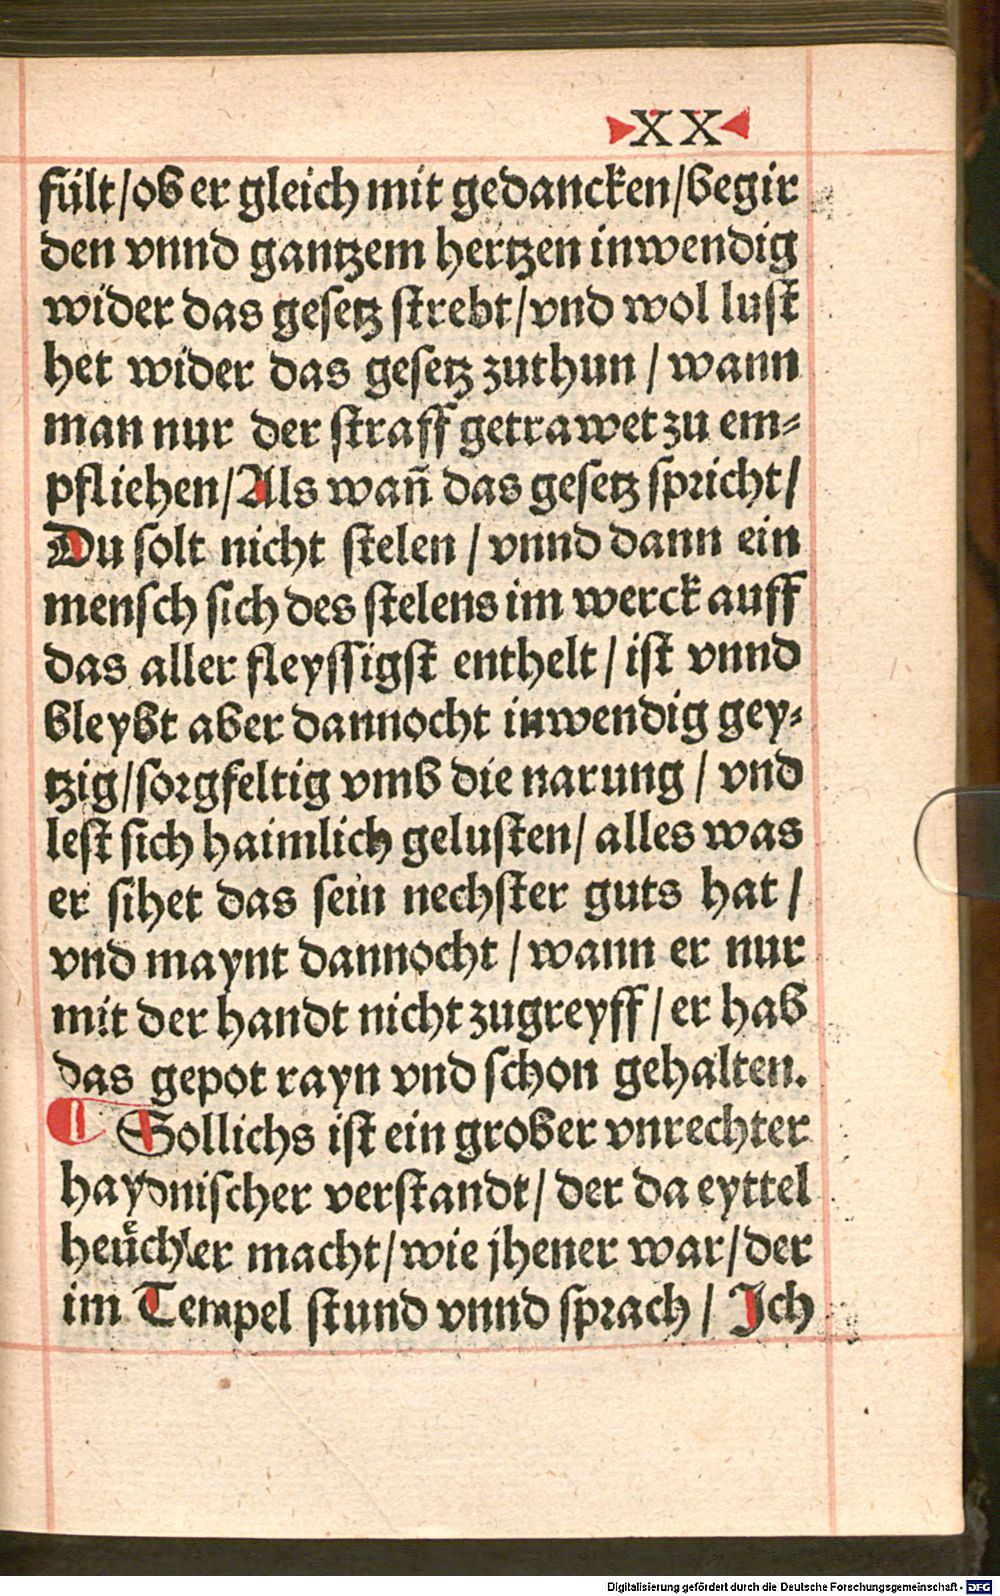 XX
fült/ob er gleich mit gedancken/begir
den vnnd gantzem hertzen inwendig
wider das gesetz strebt/vnd wol lust
het wider das gesetz zuthun / wann
man nur der straff getrawet zu em⸗
pfliehen/Als wan̄ das gesetz spricht/
Du solt nicht stelen / vnnd dann ein
mensch sich des stelens im werck auff
das aller fleyssigst enthelt / ist vnnd
bleybt aber dannocht inwendig gey⸗
tzig/sorgfeltig vmb die narung / vnd
lest sich haimlich gelusten/ alles was
er sihet das sein nechster guts hat /
vnd maynt dannocht / wann er nur
mit der handt nicht zugreyff / er hab
das gepot rayn vnd schon gehalten.
¶ Sollichs ist ein grober vnrechter
haydnischer verstandt/ der da eyttel
heuͤchler macht/wie jhener war/der
im Tempel stund vnnd sprach / Ich
Digitalisierung gefördert durch die Deutsche Forschungsgemeinschaft - DFG